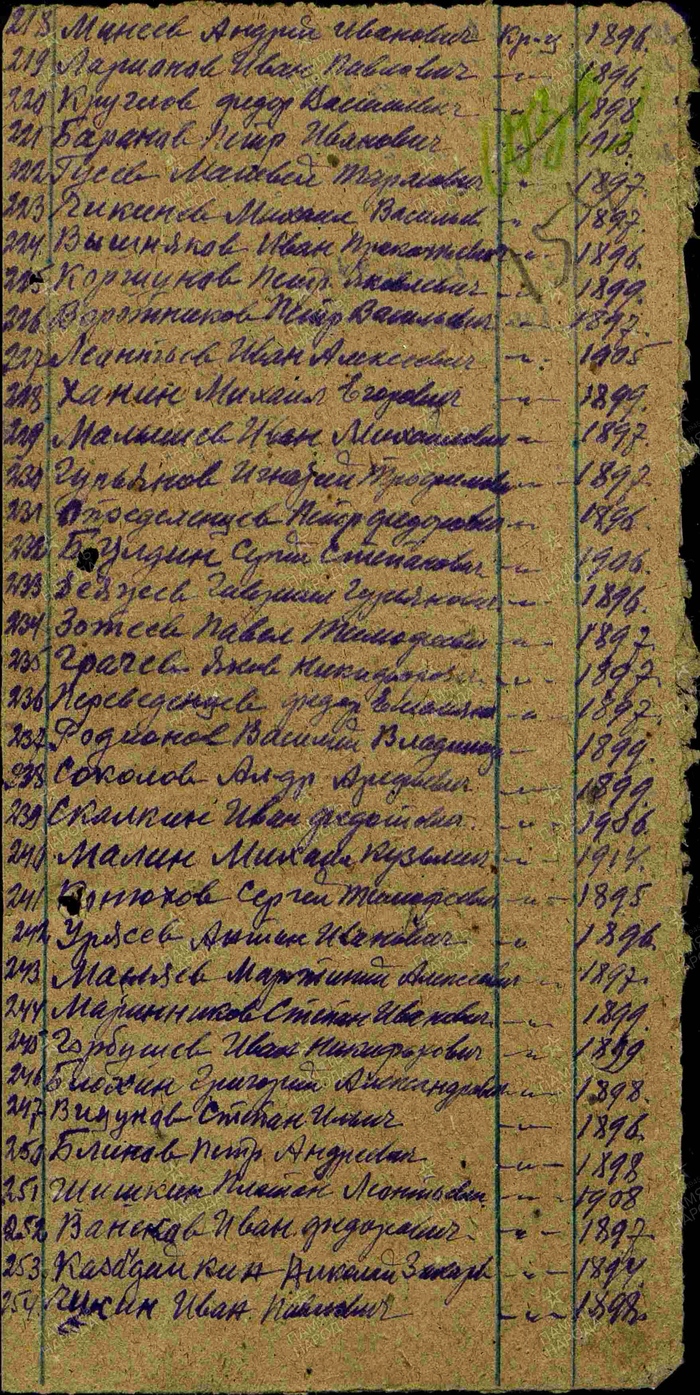 218 Минеев Андрей Иванович Кр-ц 1896.
219 Ларионов Иван Павлович -"- 1896.
220 Круглов Федор Васильевич -"- 1898
221 Баранов Петр Иванович 1918.
222 Гусев Матвей -"- 1897
223 Чикинев Михаил Васильев -"- 1897.
224 Вишняков Иван Прокопьевич -"- 1896.
225 Коршунов Петр Яковлевич -"- 1899.
226 Воротников Петр Васильевич -"- 1897.
227 Леонтьев Иван Алексеевич -"- 1905
228 Ханин Михаил Егорович -"- 1899.
229 Малышев Иван Михайлович -"- 1897.
230 Гурьянов Игнатий Трофимов -"- 1897
231 Определенцев Петр Федорович -"- 1896.
232 Булдин Сергей Степанович -"- 1906.
233 Гавриил Гурьянович -"- 1896.
234 Зотеев Павел Тимофеевич -"- 1897.
235 Грачев Яков Никифорович -"- 1897.
236 Переведенцев Федор Емельян -"- 1897.
237 Родионов Василий Владимир -"- 1899.
238 Соколов Ал-др -"- 1899.
239 Скалкин Иван Федотович -"- 1906.
240 Малин Михаил Кузьмич -"- 1914.
241 Конюхов Сергей Тимофеевич -"- 1895
242 Уряев Антон Иванович -"- 1896
243 Маляев Алексеевич -"- 1897.
244 Маринников Степан Иванович -"- 1899.
245 Горбушев Иван Никифорович -"- 1899
246 Блохин Григорий Александрович -"- 1898.
247 Степан Ильич -"- 1896.
250 Блинов Петр Андреевич -"- 1898
251 Шишкин Платон Леонтьевич -"- 1908
252 Иван Федорович -"- 1897.
253 Николай Захаров -"- 1894.
254 Чукин Иван Павлович -"- 1898.